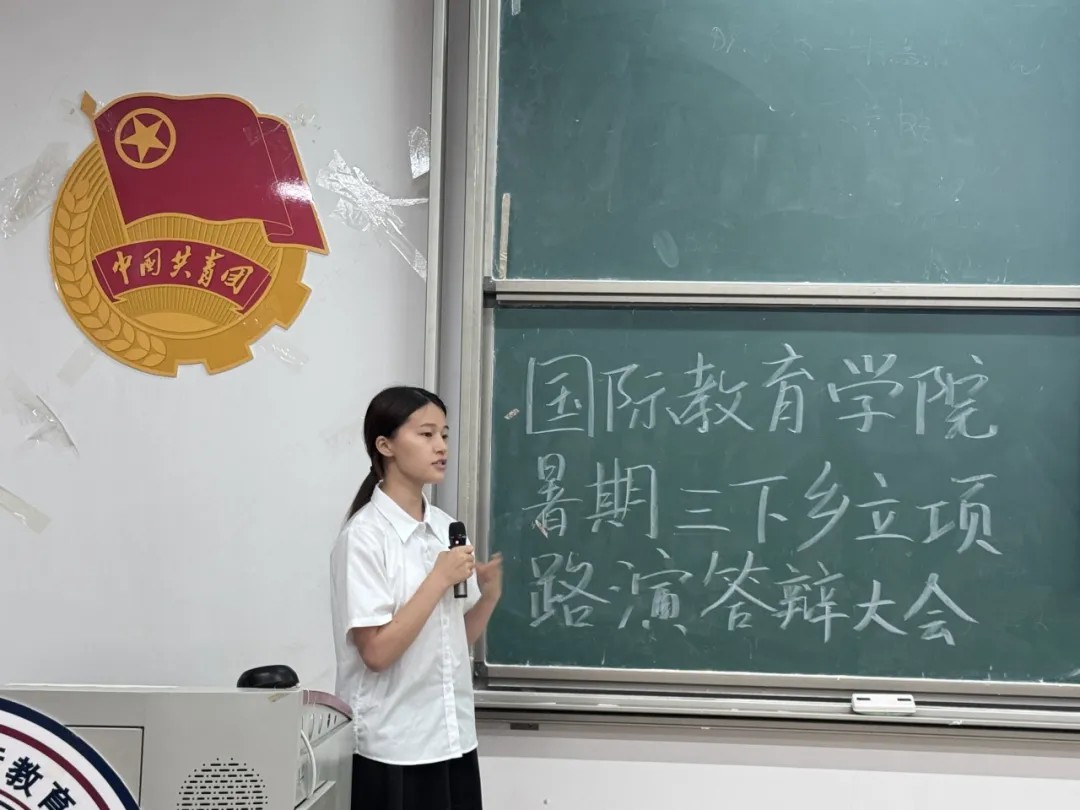 中国共青团
国际教育学院
暑期三下乡立项
路演答辩大会
教育